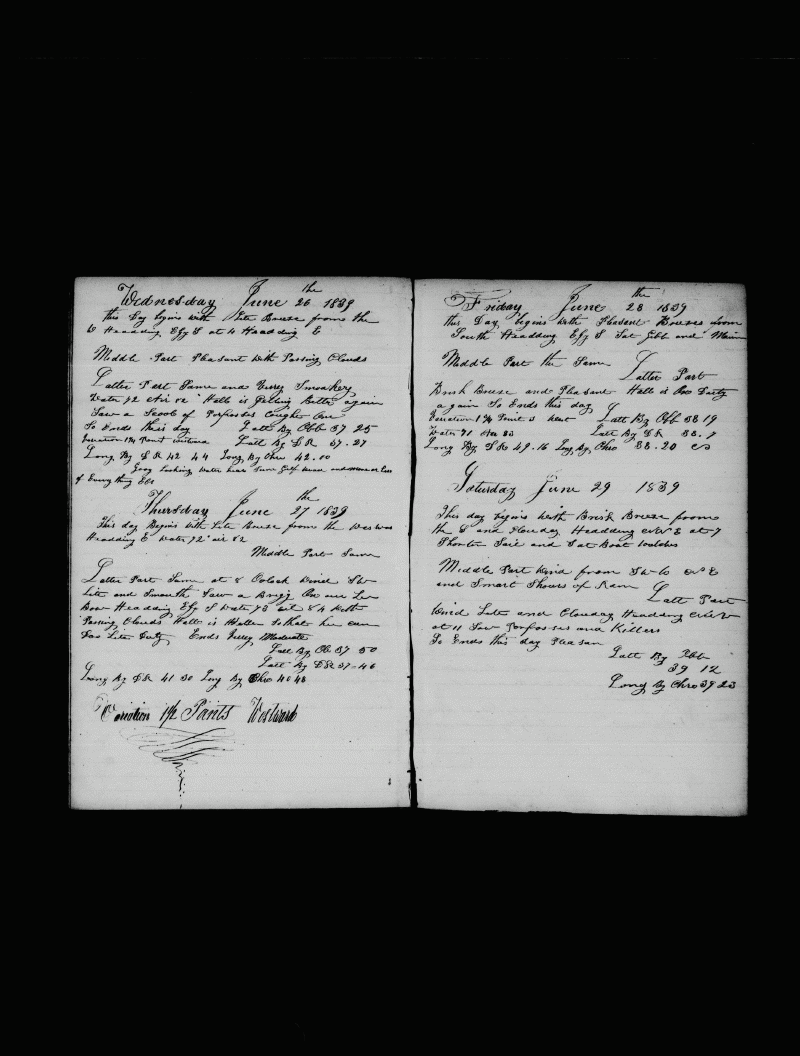 Wednesday June 26 th 1839
this Day begins with Lite Breeze from the
W Headding Efy S at 4 Headding E
Meddle Part Pleasant With Passing Clouds
Latter Part Same and Verrey Smoakey
Water 72 Air 82 Halls is Getting Better again
Saw a Scool of Porposses Caught One
So Ends this day Latt By Obb 37 25
Varuation 1¾ Point Latt By D R 37.27
Long By D R 42 44 Long By Chro 42.00
Gray Looking Water Near Same Gulf weed and more or less
of Everything Els
Thursday June 27 th 1839
This day Begins With Lite Breeze from the
Headding E Water 72 air 82
Middle Part Same
Latter Part Same at 8 Oclock Wind SW
Lite and Smouth Saw a Brigg On our Le
Bow Headding Efy S Water 73 air 84 With
Passing Clouds Halls is Better So that he can
Doo Lite Duty Ends Verrey Moderate
Latt By Ob 37 50
Latt By D R 37-46
Long By D R 41 30 Long By Chro 40 48
Varuation 1½ Points Westward
Friday June 28 th 1839
this Day begins With Pleasant Breeze from
South Headding Efy S Sat Gibb and Main
Meddle Part the Same
Latter Part
Brisk Breeze and Pleasant Halls is On Duty
again So Ends this day
Varuation 1¾ Point West Latt By Obb 38 19
Water 71 Air 83 Latt By D R 38.9
Long By D R 49.16 Long By Chro 38.20
Saturday June 29 1839
This day begins With Brisk Breeze from
the S and Clouday Headding at 7
Shorten Sail and Sat Boat Watches
Meddle Part Wind from SW to
and Smart Showrs of Rain
Latt Part
Wind Lite and Clouday Headding
at 11 Saw Porposses and Killers
So Ends this day Pleasan
Latt By Obb
39 12
Long By Chro 39 23